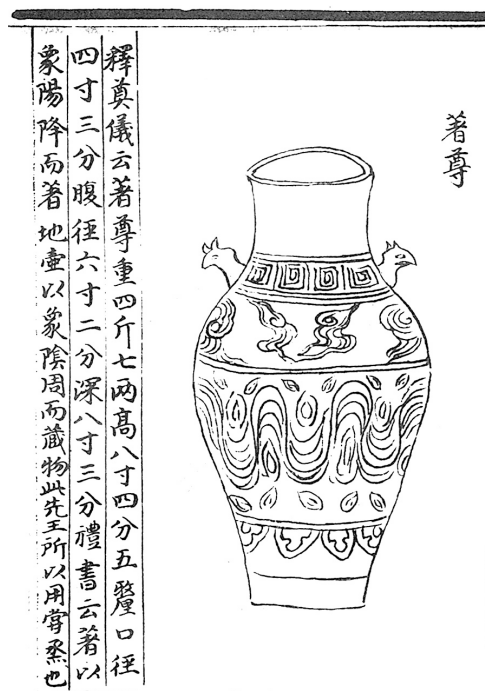 著尊
釋奠儀云著尊重四斤七两高八寸四分五釐口徑
四寸三分腹徑六寸二分深八寸三分禮書云著以
象陽降而著地壷以象隂周而藏物此先王所以用嘗烝也